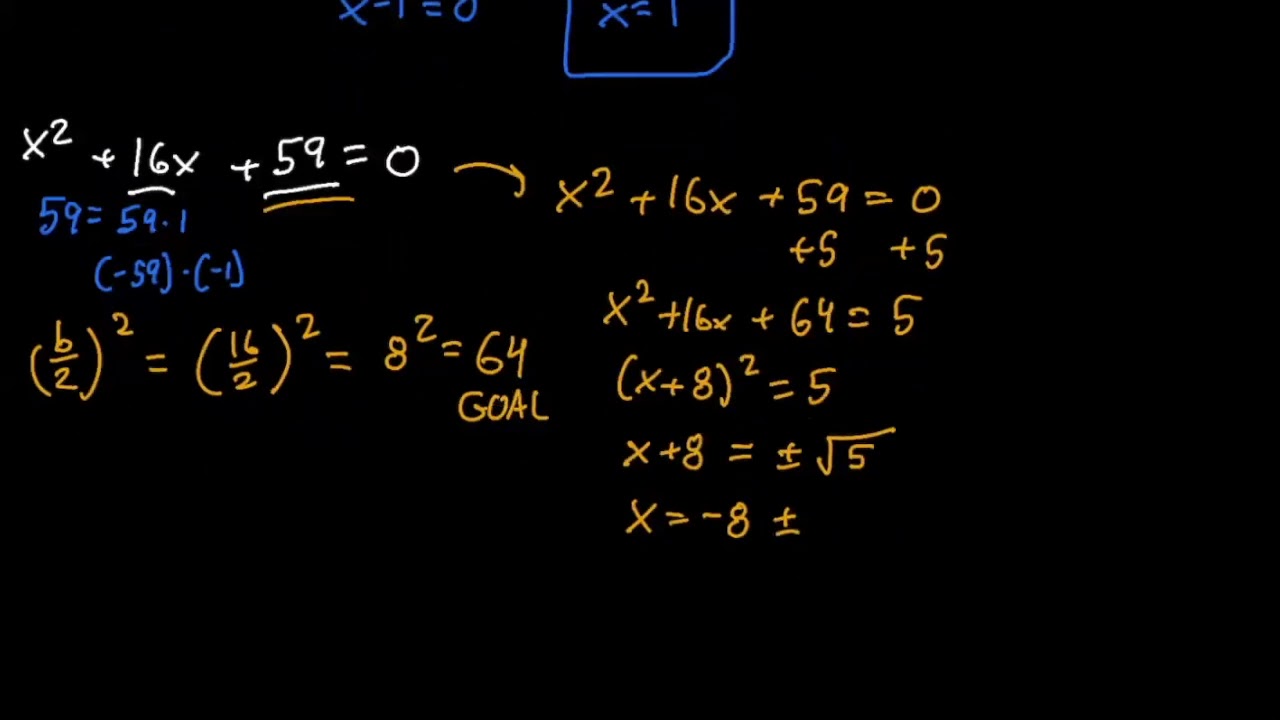 x-1=0 x=1
x² + 16x + 59 = 0
59 = 59·1
(-59)·(-1)
(b/2)² = (16/2)² = 8² = 64
GOAL
x² + 16x + 59 = 0
+5 +5
x² + 16x + 64 = 5
(x+8)² = 5
x+8 = ± √5
x = -8 ±